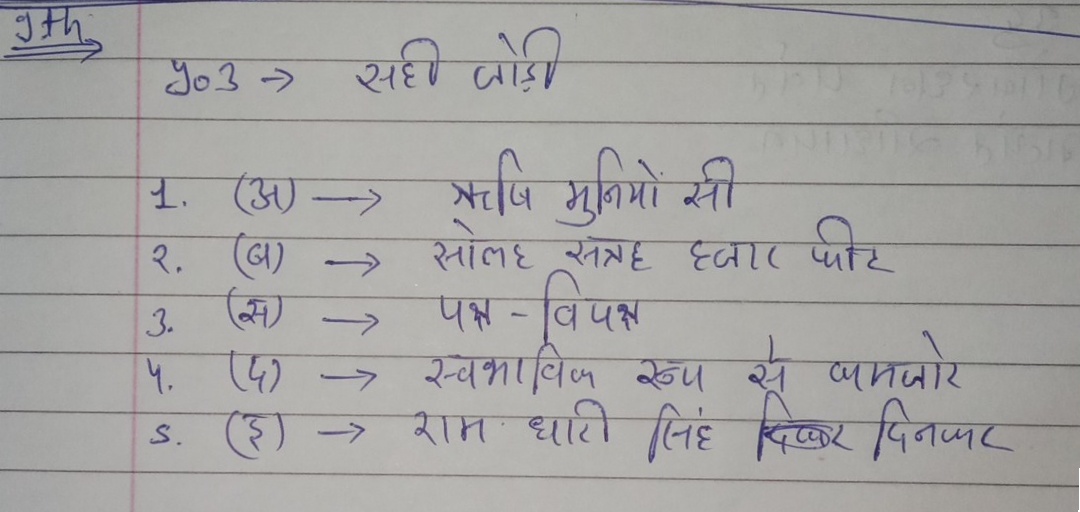 9th
प्र०3 → सही जोड़ी
1. (अ) → ऋषि मुनियों सी
2. (ब) → सोलह सत्रह हजार फीट
3. (स) → पक्ष - विपक्ष
4. (द) → स्वभाविक रूप से कमजोर
5. (इ) → राम धारी सिंह दिनकर